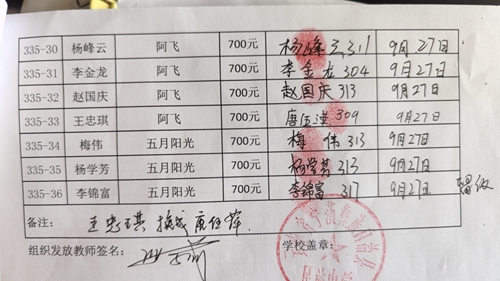 335-30 杨峰云 阿飞 700元 杨峰云 311 9月27日
335-31 李金龙 阿飞 700元 李金龙 304 9月27日
335-32 赵国庆 阿飞 700元 赵国庆 313 9月27日
335-33 王忠琪 阿飞 700元 309 9月27日
335-34 梅伟 五月阳光 700元 梅伟 313 9月27日
335-35 杨学芳 五月阳光 700元 杨学芳 313 9月27日
335-36 李锦富 五月阳光 700元 李锦富 317 9月27日
备注： 王忠琪 换成
组织发放教师签名：
学校盖章：